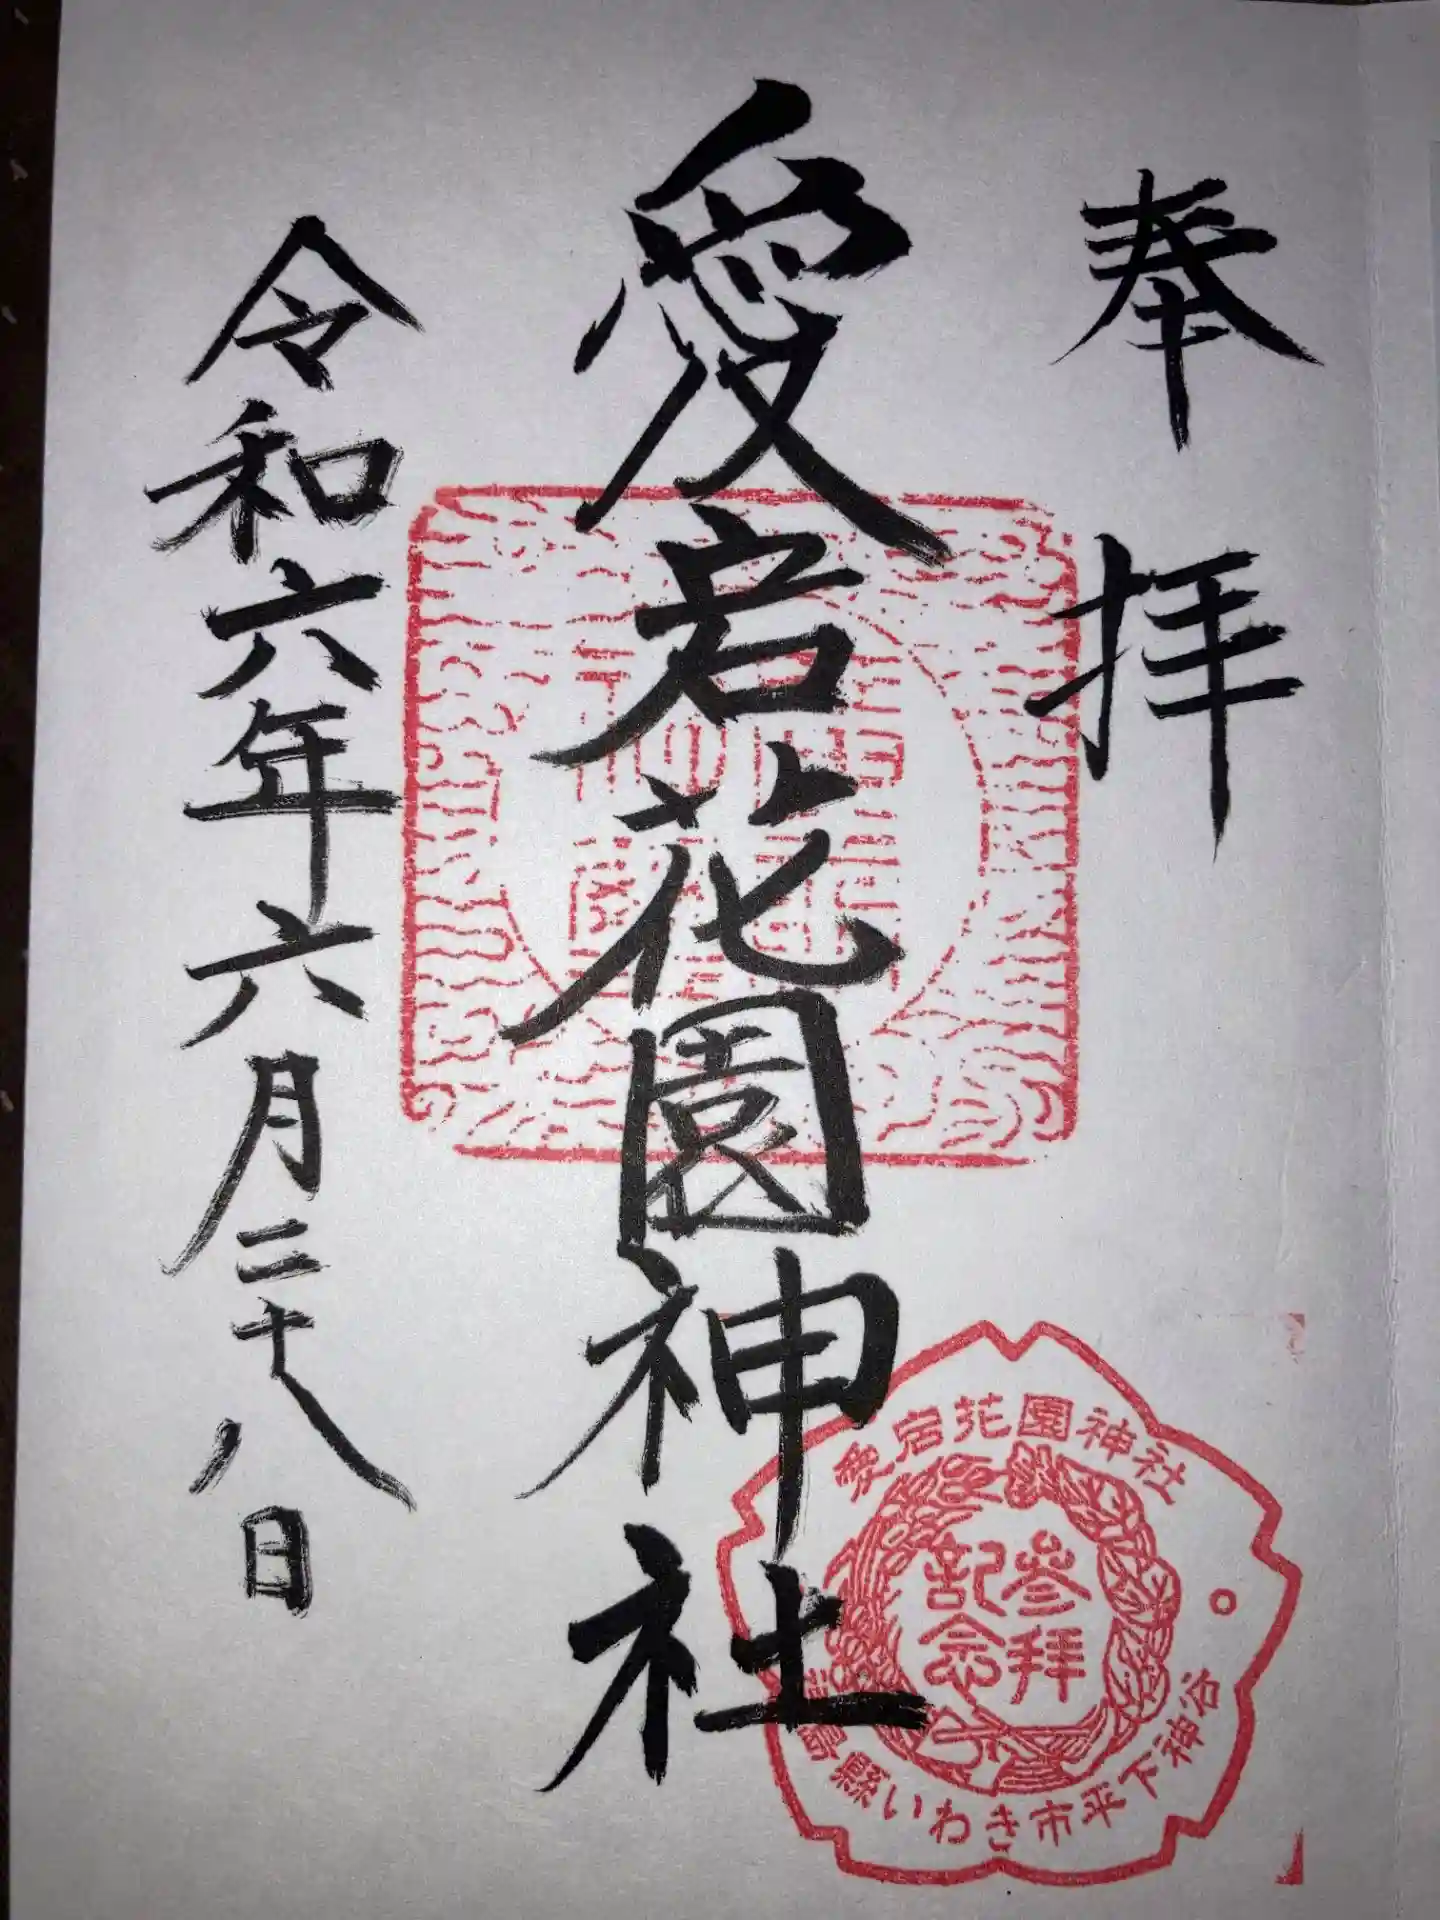 奉拝
愛宕花園神社
令和六年六月二十八日
愛宕花園神社
參拝
記念
島縣いわき市平下神谷